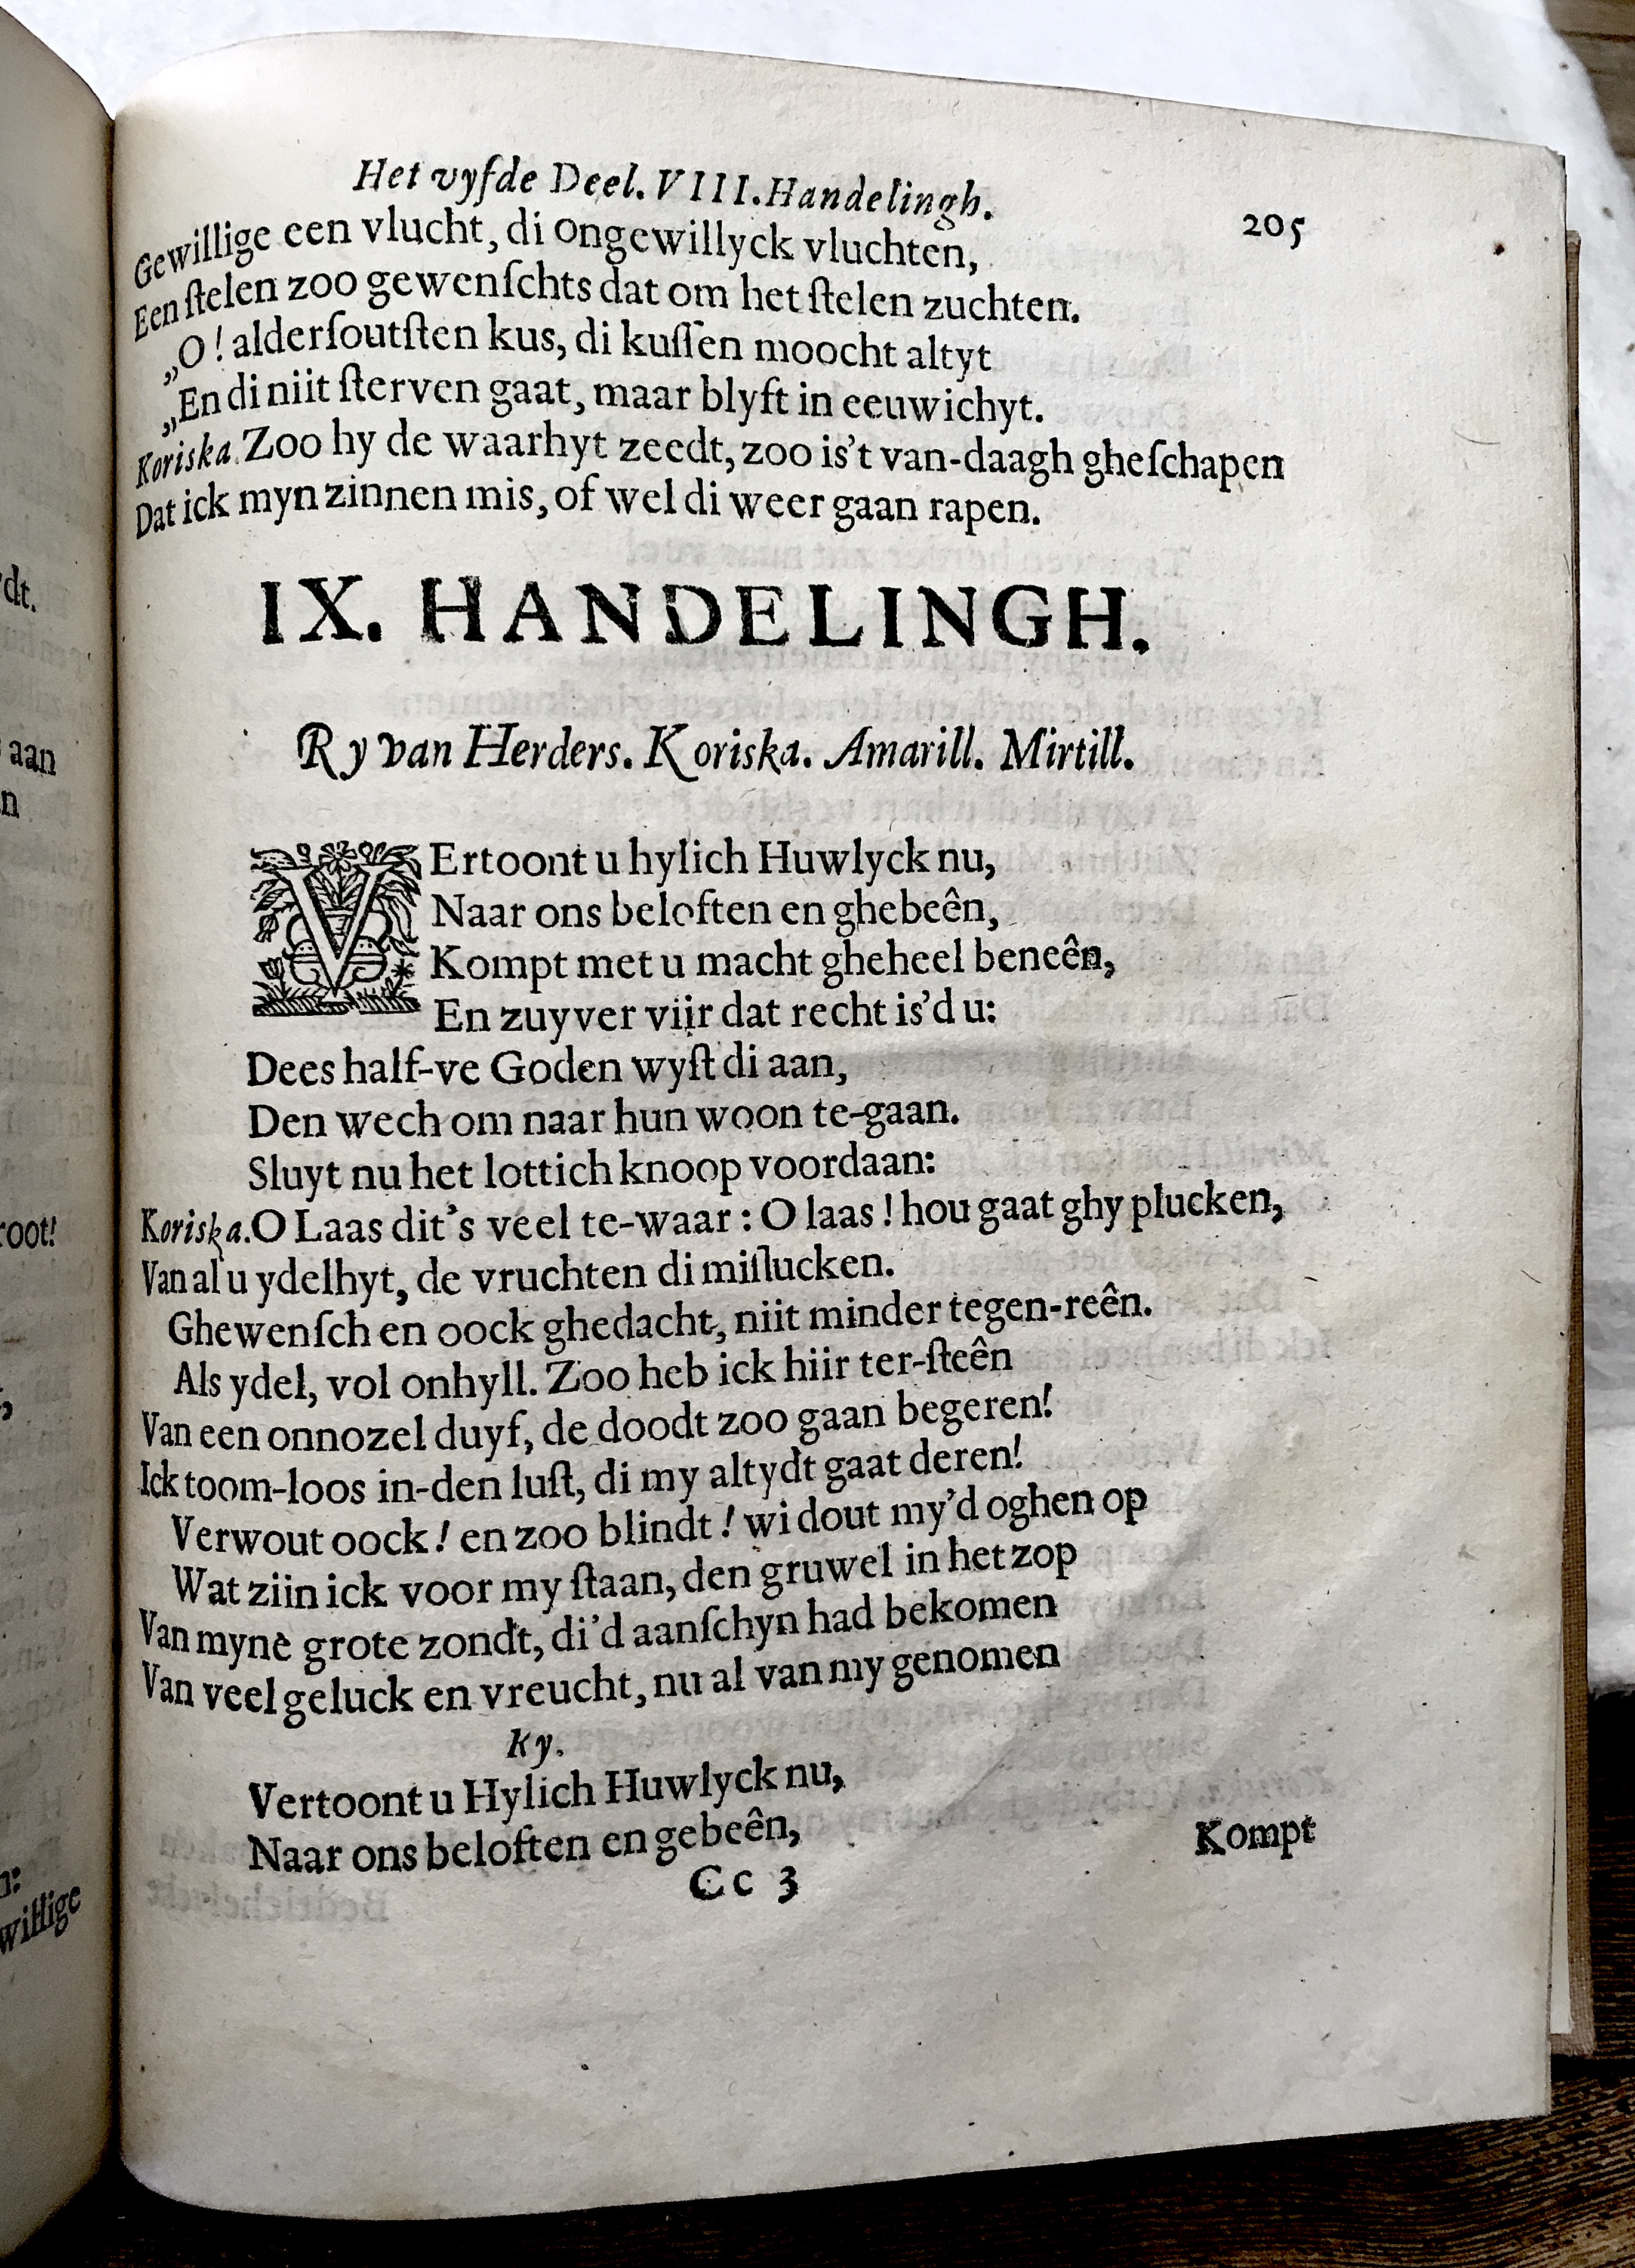 Het vyfde Deel. VIII. Handelingh. 205
Gewillige een vlucht, di ongewillyck vluchten,
Een ſtelen zoo gewenſchts dat om het ſtelen zuchten.
„O! alderſoutſten kus, di kuſſen moocht altyt
„En di niit ſterven gaat, maar blyft in eeuwichyt.
Koriska. Zoo hy de waarhyt zeedt, zoo is't van-daagh gheſchapen
Dat ick myn zinnen mis, of wel di weer gaan rapen.
IX. HANDELINGH.
Ry van Herders. Koriska. Amarill. Mirtill.
VErtoont u hylich Huwlyck nu,
Naar ons beloften en ghebeên,
Kompt met u macht gheheel beneên,
En zuyver viir dat recht is'd u:
Dees half-ve Goden wyſt di aan,
Den wech om naar hun woon te-gaan.
Sluyt nu het lottich knoop voordaan:
Koriska. O Laas dit's veel te-waar: O laas! hou gaat ghy plucken,
Van al u ydelhyt, de vruchten di miſlucken.
Ghewenſch en oock ghedacht, niit minder tegen-reên.
Als ydel, vol onhyll. Zoo heb ick hiir ter-ſteên
Van een onnozel duyf, de doodt zoo gaan begeren!
Ick toom-loos in-den luſt, di my altydt gaat deren!
Verwout oock! en zoo blindt! wi dout my'd oghen op
Wat ziin ick voor my ſtaan, den gruwel in het zop
Van myne grote zondt, di'd aanſchyn had bekomen
Van veel geluck en vreucht, nu al van my genomen
Ry.
Vertoont u Hylich Huwlyck nu,
Naar ons beloften en gebeên,
Cc 3 Kompt